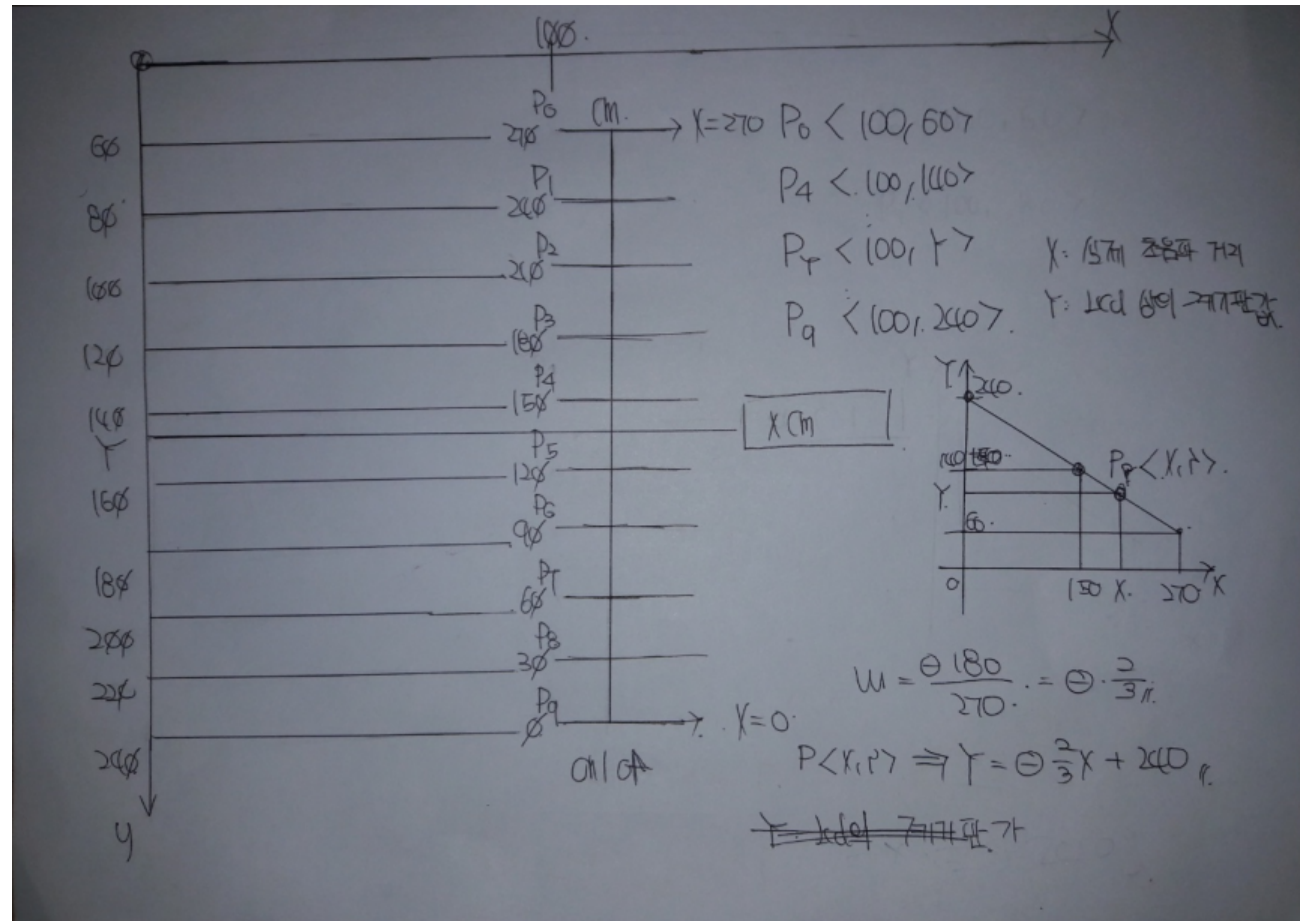 100.
X
60
80
100
120
140
Y
160
180
200
220
240
y
P0
270
cm.
P1
240
P2
210
P3
180
P4
150
P5
120
P6
90
P7
60
P8
30
P9
0
on/off
X=270 P0 <100,60>
P4 <100,140>
PY <100, Y>
P9 <100,240>.
X: 실제 초음파 거리
Y: Lcd 상의 계기판값.
X cm
X=0.
Y
240.
140
Y.
60.
0
150 X. 270 X
<X,Y>.
m = ⊖180/270. = ⊖·2/3〃
P<X,Y> ⇒ Y = ⊖2/3X + 240〃